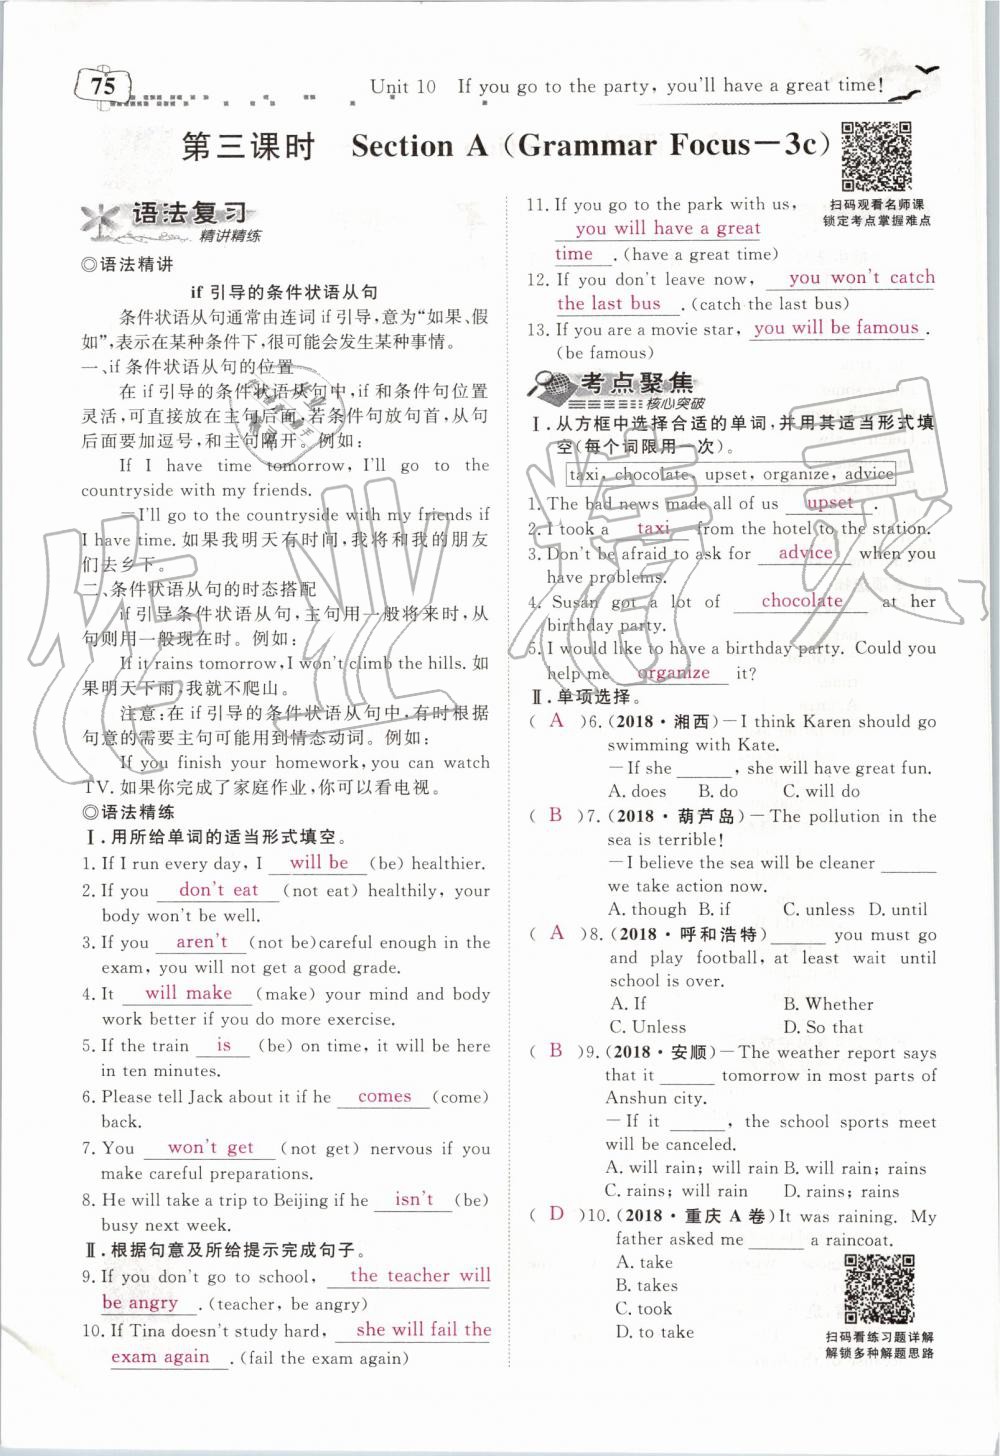 75
Unit 10 If you go to the party, you'll have a great time!
第三课时 Section A (Grammar Focus－3c)
语法复习
精讲精练
◎语法精讲
if 引导的条件状语从句
条件状语从句通常由连词 if 引导,意为“如果、假
如”,表示在某种条件下,很可能会发生某种事情。
一、if 条件状语从句的位置
在 if 引导的条件状语从句中,if 和条件句的位置
灵活,可直接放在主句后面,若条件句放句首,从句
后面要加逗号,和主句隔开。例如:
If I have time tomorrow, I'll go to the
countryside with my friends.
=I'll go to the countryside with my friends if
I have time. 如果我明天有时间,我将和我的朋友
们去乡下。
二、条件状语从句的时态搭配
if 引导条件状语从句,主句用一般将来时,从
句则用一般现在时。例如:
If it rains tomorrow, I won't climb the hills. 如
果明天下雨,我就不爬山。
注意:在 if 引导的条件状语从句中,有时根据
句意的需要主句可能用到情态动词。例如:
If you finish your homework, you can watch
TV. 如果你完成了家庭作业,你可以看电视。
◎语法精练
Ⅰ.用所给单词的适当形式填空。
1. If I run every day, I will be (be) healthier.
2. If you don't eat (not eat) healthily, your
body won't be well.
3. If you aren't (not be)careful enough in the
exam, you will not get a good grade.
4. It will make (make) your mind and body
work better if you do more exercise.
5. If the train is (be) on time, it will be here
in ten minutes.
6. Please tell Jack about it if he comes (come)
back.
7. You won't get (not get) nervous if you
make careful preparations.
8. He will take a trip to Beijing if he isn't (be)
busy next week.
Ⅱ.根据句意及所给提示完成句子。
9. If you don't go to school, the teacher will
be angry . (teacher, be angry)
10. If Tina doesn't study hard, she will fail the
exam again . (fail the exam again)
11. If you go to the park with us,
you will have a great
time . (have a great time)
12. If you don't leave now, you won't catch
the last bus . (catch the last bus)
13. If you are a movie star, you will be famous .
(be famous)
扫码观看名师课
锁定考点掌握难点
考点聚焦
核心突破
Ⅰ.从方框中选择合适的单词,并用其适当形式填
空(每个词限用一次)。
taxi, chocolate, upset, organize, advice
1. The bad news made all of us upset .
2. I took a taxi from the hotel to the station.
3. Don't be afraid to ask for advice when you
have problems.
4. Susan got a lot of chocolate at her
birthday party.
5. I would like to have a birthday party. Could you
help me organize it?
Ⅱ.单项选择。
( A )6. (2018·湘西)－I think Karen should go
swimming with Kate.
－If she ______, she will have great fun.
A. does B. do C. will do
( B )7. (2018·葫芦岛)－The pollution in the
sea is terrible!
－I believe the sea will be cleaner ______
we take action now.
A. though B. if C. unless D. until
( A )8. (2018·呼和浩特)______ you must go
and play football, at least wait until
school is over.
A. If B. Whether
C. Unless D. So that
( B )9. (2018·安顺)－The weather report says
that it ______ tomorrow in most parts of
Anshun city.
－If it ______, the school sports meet
will be canceled.
A. will rain; will rain B. will rain; rains
C. rains; will rain D. rains; rains
( D )10. (2018·重庆 A 卷)It was raining. My
father asked me ______ a raincoat.
A. take
B. takes
C. took
D. to take
扫码看练习题详解
解锁多种解题思路
作业精灵